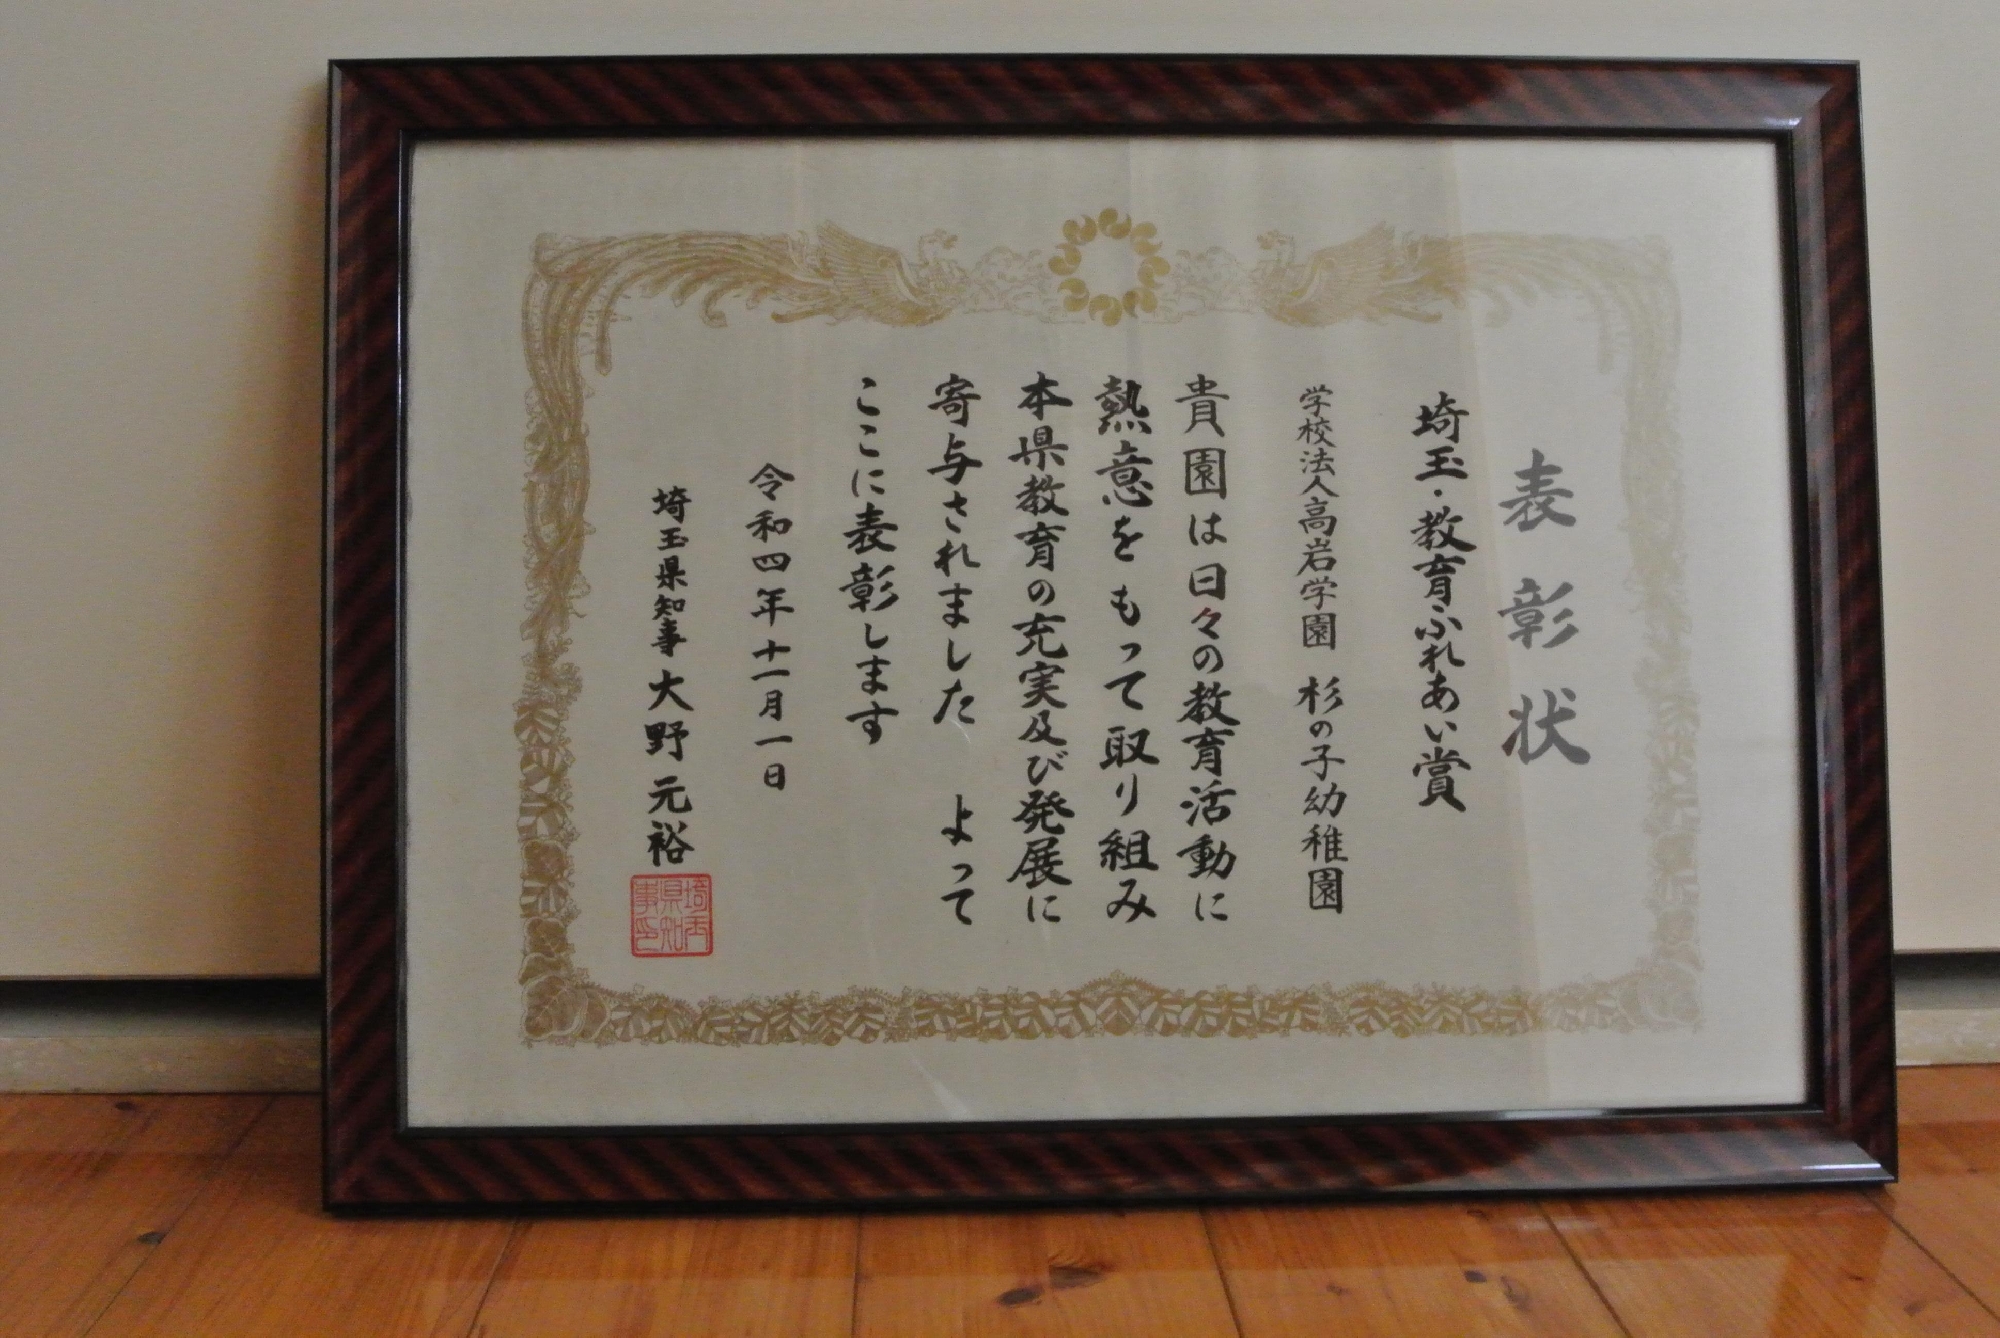 表彰状
埼玉・教育ふれあい賞
学校法人高岩学園 杉の子幼稚園
貴園は日々の教育活動に
熱意をもって取り組み
本県教育の充実及び発展に
寄与されました よって
ここに表彰します
令和四年十一月一日
埼玉県知事 大野元裕
埼玉県知事印